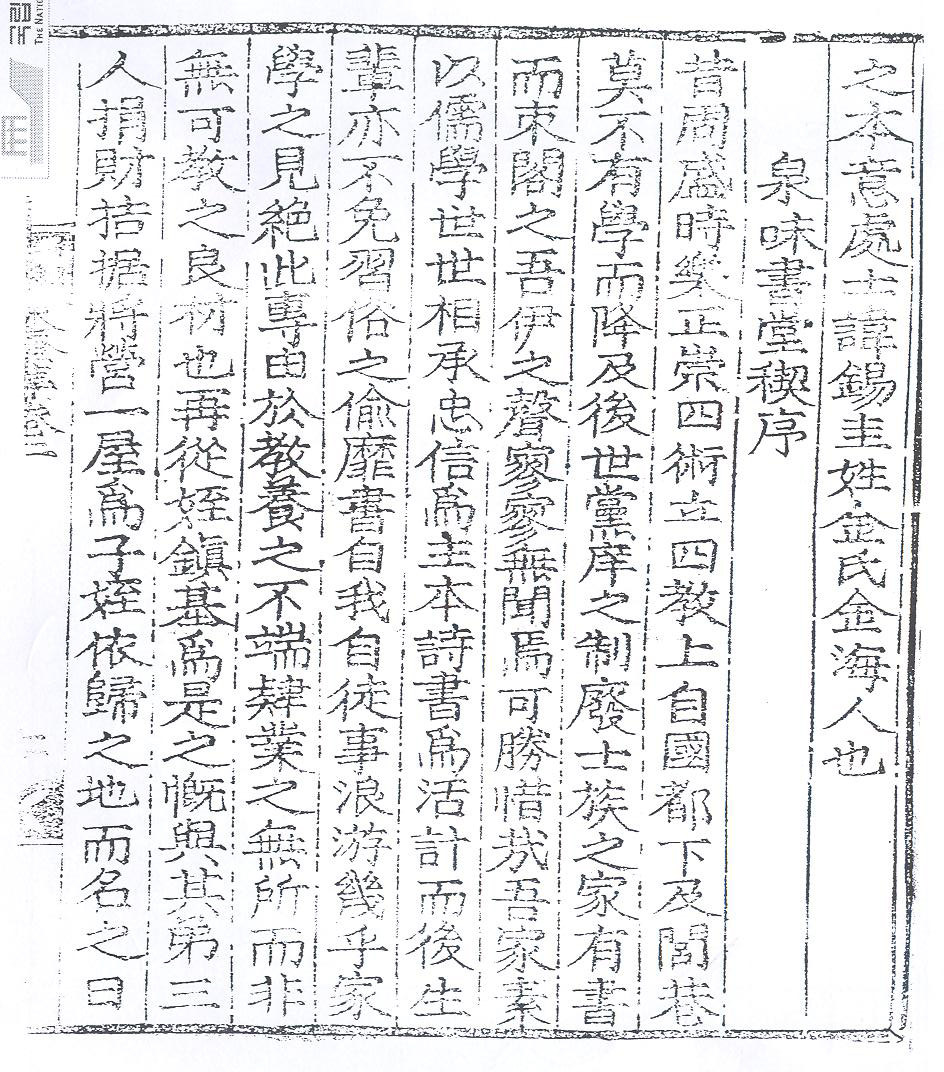 之本意處士諱錫圭姓金氏金海人也
泉味書堂稧序
昔周盛時樂正崇四術立四教上自國都下及閭巷
莫不有學而降及後世黨庠之制廢士族之家有書
而束閣之吾伊之聲寥寥無聞焉可勝惜哉吾家素
以儒學世世相承忠信爲主本詩書爲活計而後生
輩亦不免習俗之偷靡書自我自徒事浪游幾乎家
學之見絶此專由於教養之不端肄業之無所而非
無可教之良材也再從姪鎭基爲是之慨與其弟三
人捐財拮据將營一屋爲子姪依歸之地而名之曰
THE NATIO